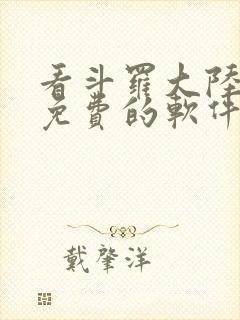 看斗羅大陸
免費的軟件
戴肇洋